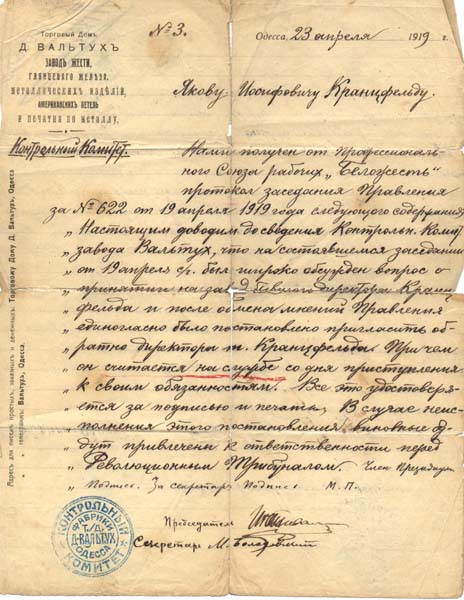 Торговый Домъ
Д. ВАЛЬТУХЪ
ЗАВОДЪ ЖЕСТИ,
ГЛЯНЦЕВАГО ЖЕЛѢЗА,
МЕТАЛЛИЧЕСКИХЪ ИЗДѢЛІЙ,
АМЕРИКАНСКИХЪ ПЕТЕЛЬ
И ПЕЧАТНЯ ПО МЕТАЛЛУ.
№ 3.
Одесса, 23 апреля 1919 г.
Якову Иосифовичу Кранцфельду.
Контрольный Комит.
Нами получен от Профессиональ-
ного Союза рабочих „Беложесть"
протокол заседания Правления
за № 622 от 19 апреля 1919 года следующего содержания:
„Настоящим доводим до сведения Контрольн. Комит.
„ завода Вальтух, что на состоявшемся заседании
„ от 19 апреля с/г. был широко обсужден вопрос о
„ принятии на завод бывшего директора Кранц-
„ фельда и после обмена мнений Правления
„ единогласно было постановлено пригласить об-
„ ратно директора т. Кранцфельда. При чем
„ он считается на службе со дня приступления
„ к своим обязанностям. Все это удостоверя-
„ ется за подписью и печатью. В случае неис-
„ полнения этого постановления виновные бу-
„ дут привлечены к ответственности перед
„ Революционным Трибуналом. Член Президиума
„ Подпись. За секретаря Подпись М.П.
Председатель
Секретарь М.
КОНТРОЛЬНЫЙ КОМИТЕТ
ФАБРИКИ
Т/Д.
Д. ВАЛЬТУХ
ОДЕССА
Адресъ для писемъ простыхъ, заказныхъ и денежныхъ: Торговому Дому Д. Вальтухъ, Одесса
„ телеграммъ: Вальтухъ, Одесса.